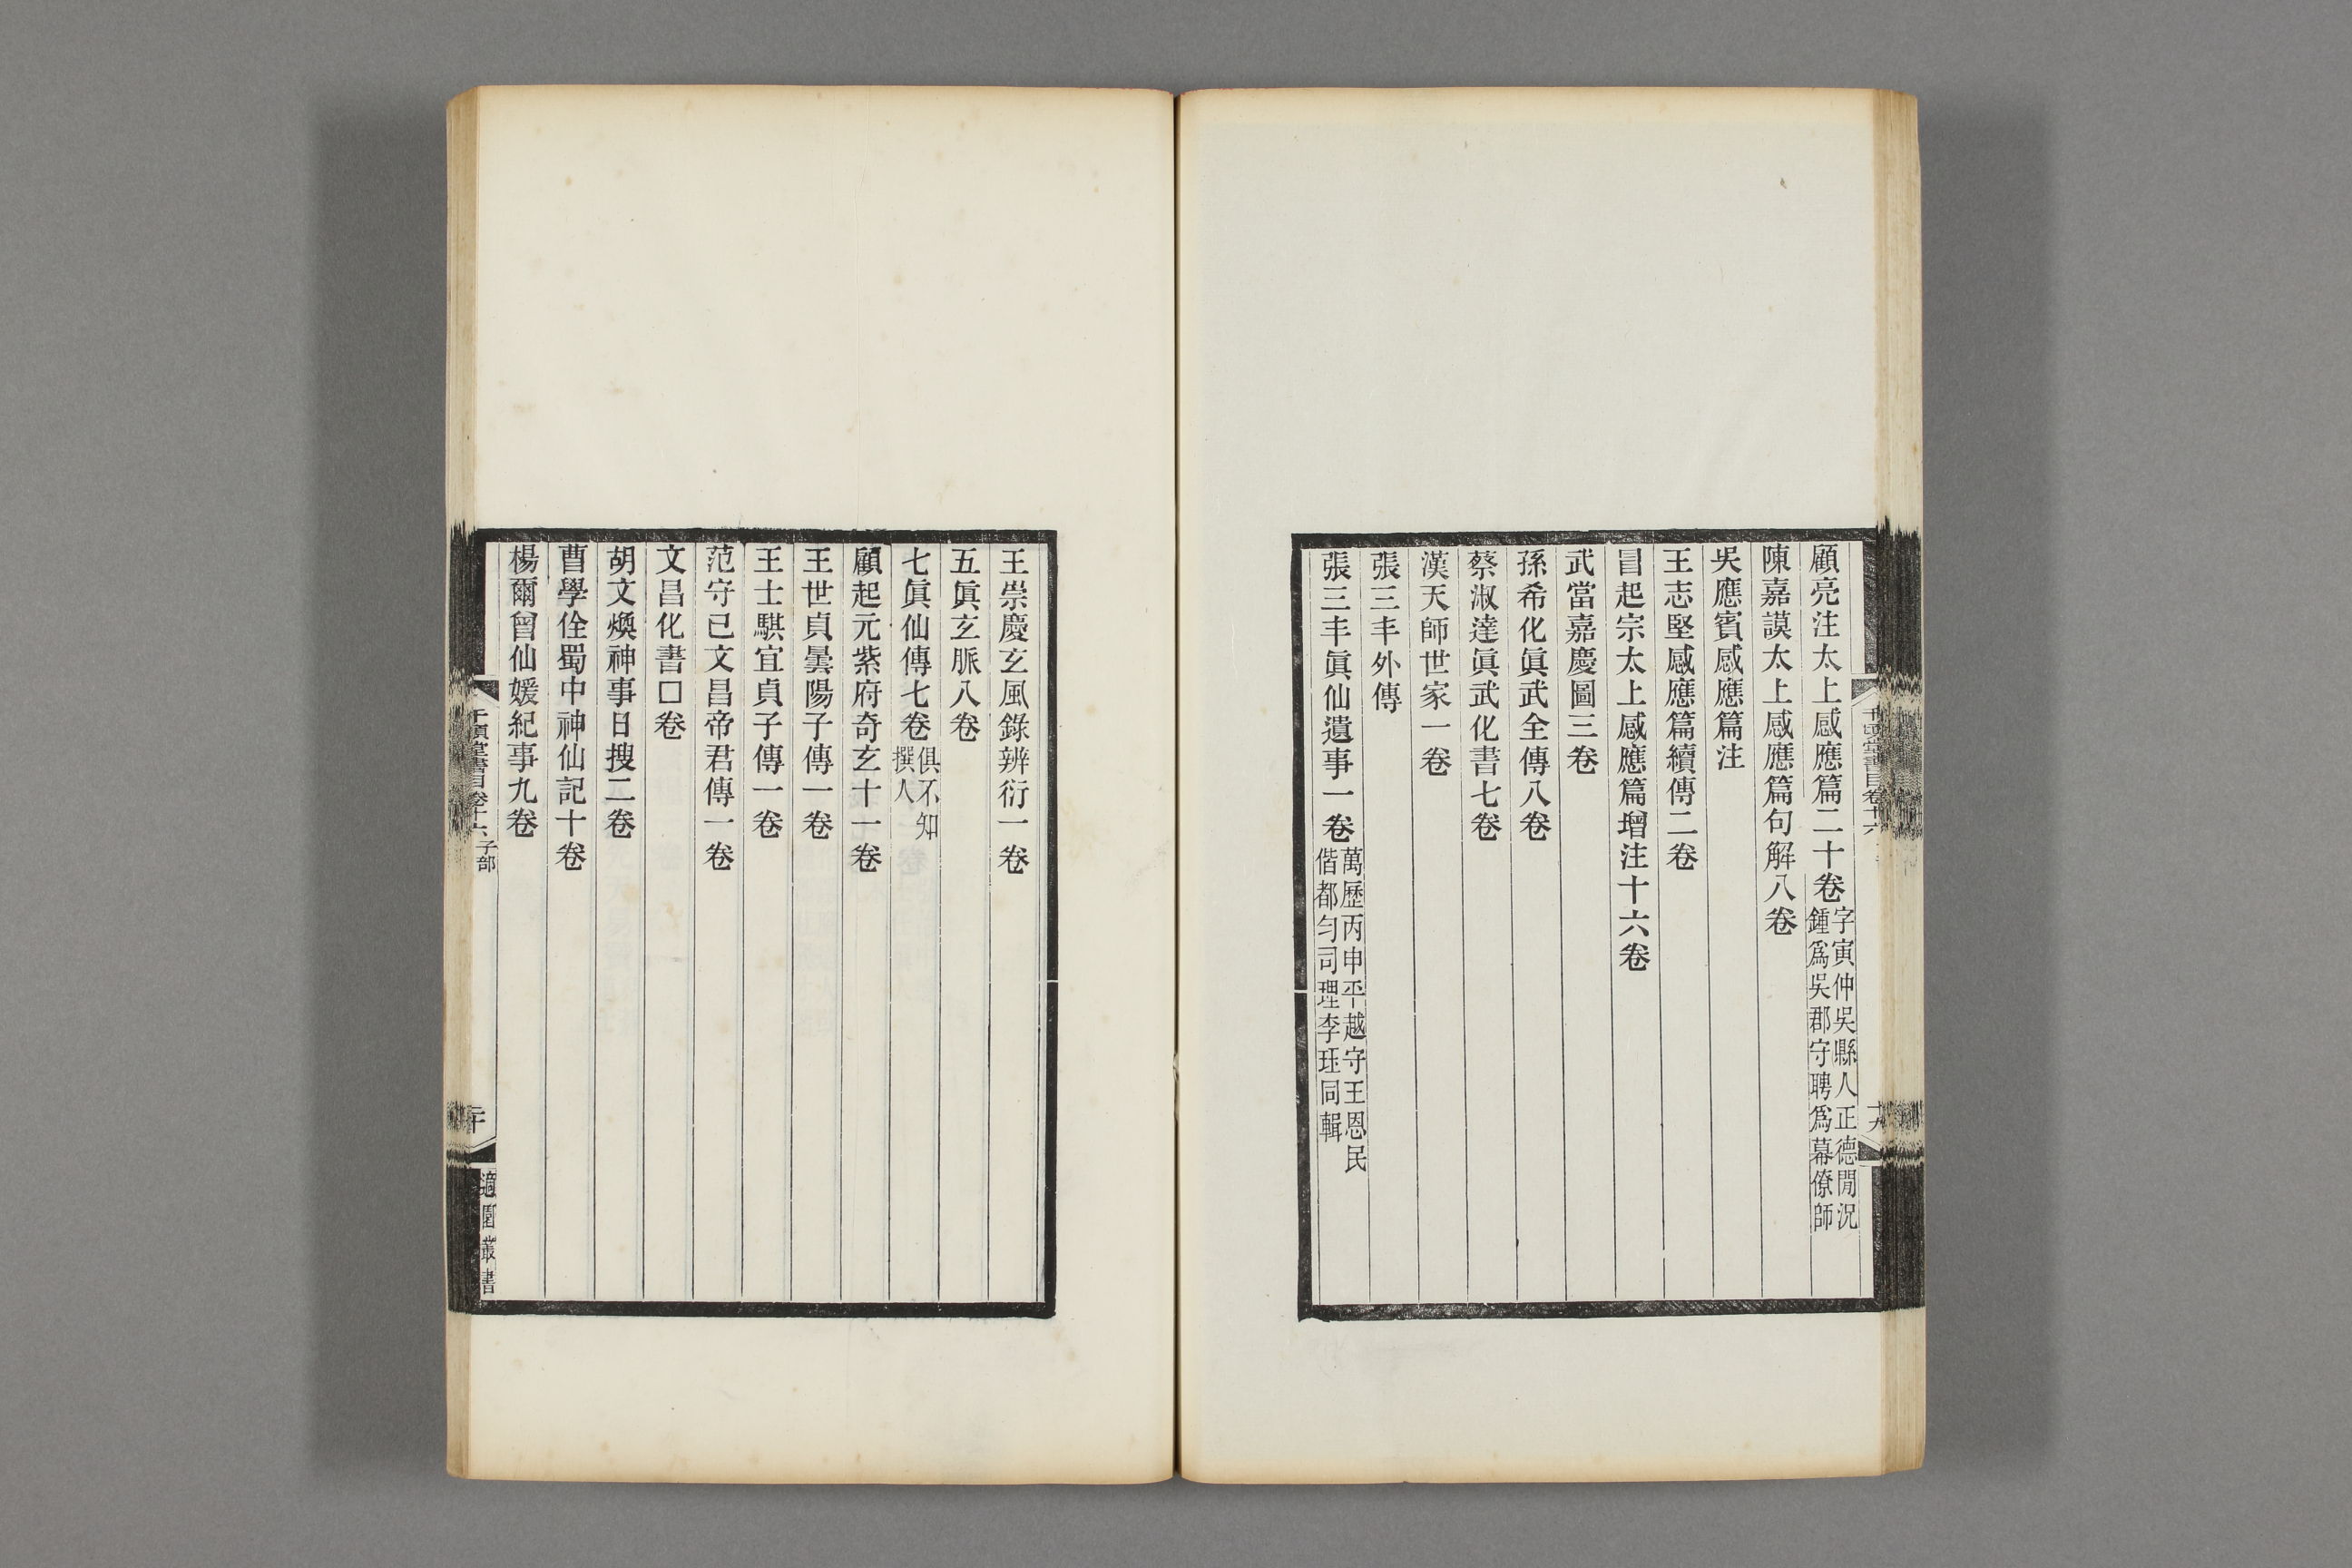 顧亮注太上感應篇二十卷字寅仲吳縣人正德閒況鍾爲吳郡守聘爲幕僚師
陳嘉謨太上感應篇句解八卷
吳應賓感應篇注
王志堅感應篇續傳二卷
冒起宗太上感應篇增注十六卷
武當嘉慶圖三卷
孫希化眞武全傳八卷
蔡淑達眞武化書七卷
漢天師世家一卷
張三丰外傳
張三丰眞仙遺事一卷萬歷丙申平越守王恩民偕都勻司理李珏同輯
王崇慶玄風錄辨衍一卷
五眞玄脈八卷
七眞仙傳七卷俱不知撰人
顧起元紫府奇玄十一卷
王世貞曇陽子傳一卷
王士騏宜貞子傳一卷
范守己文昌帝君傳一卷
文昌化書□卷
胡文煥神事日搜二卷
曹學佺蜀中神仙記十卷
楊爾曾仙媛紀事九卷
千頃堂書目卷十六 子部
二十
適園叢書